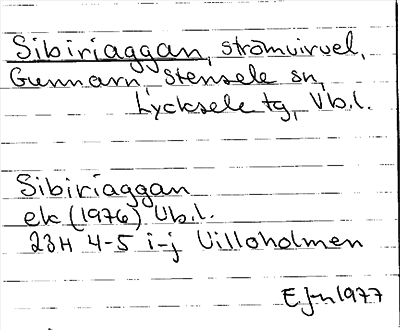 Sibiriaggan, strömvirvel,
Gunnarn, Stensele sn,
Lycksele tg, Vb.l.
Sibiriaggan
ek (1976) Vb.l.
23H 4-5 i-j Villoholmen
1977